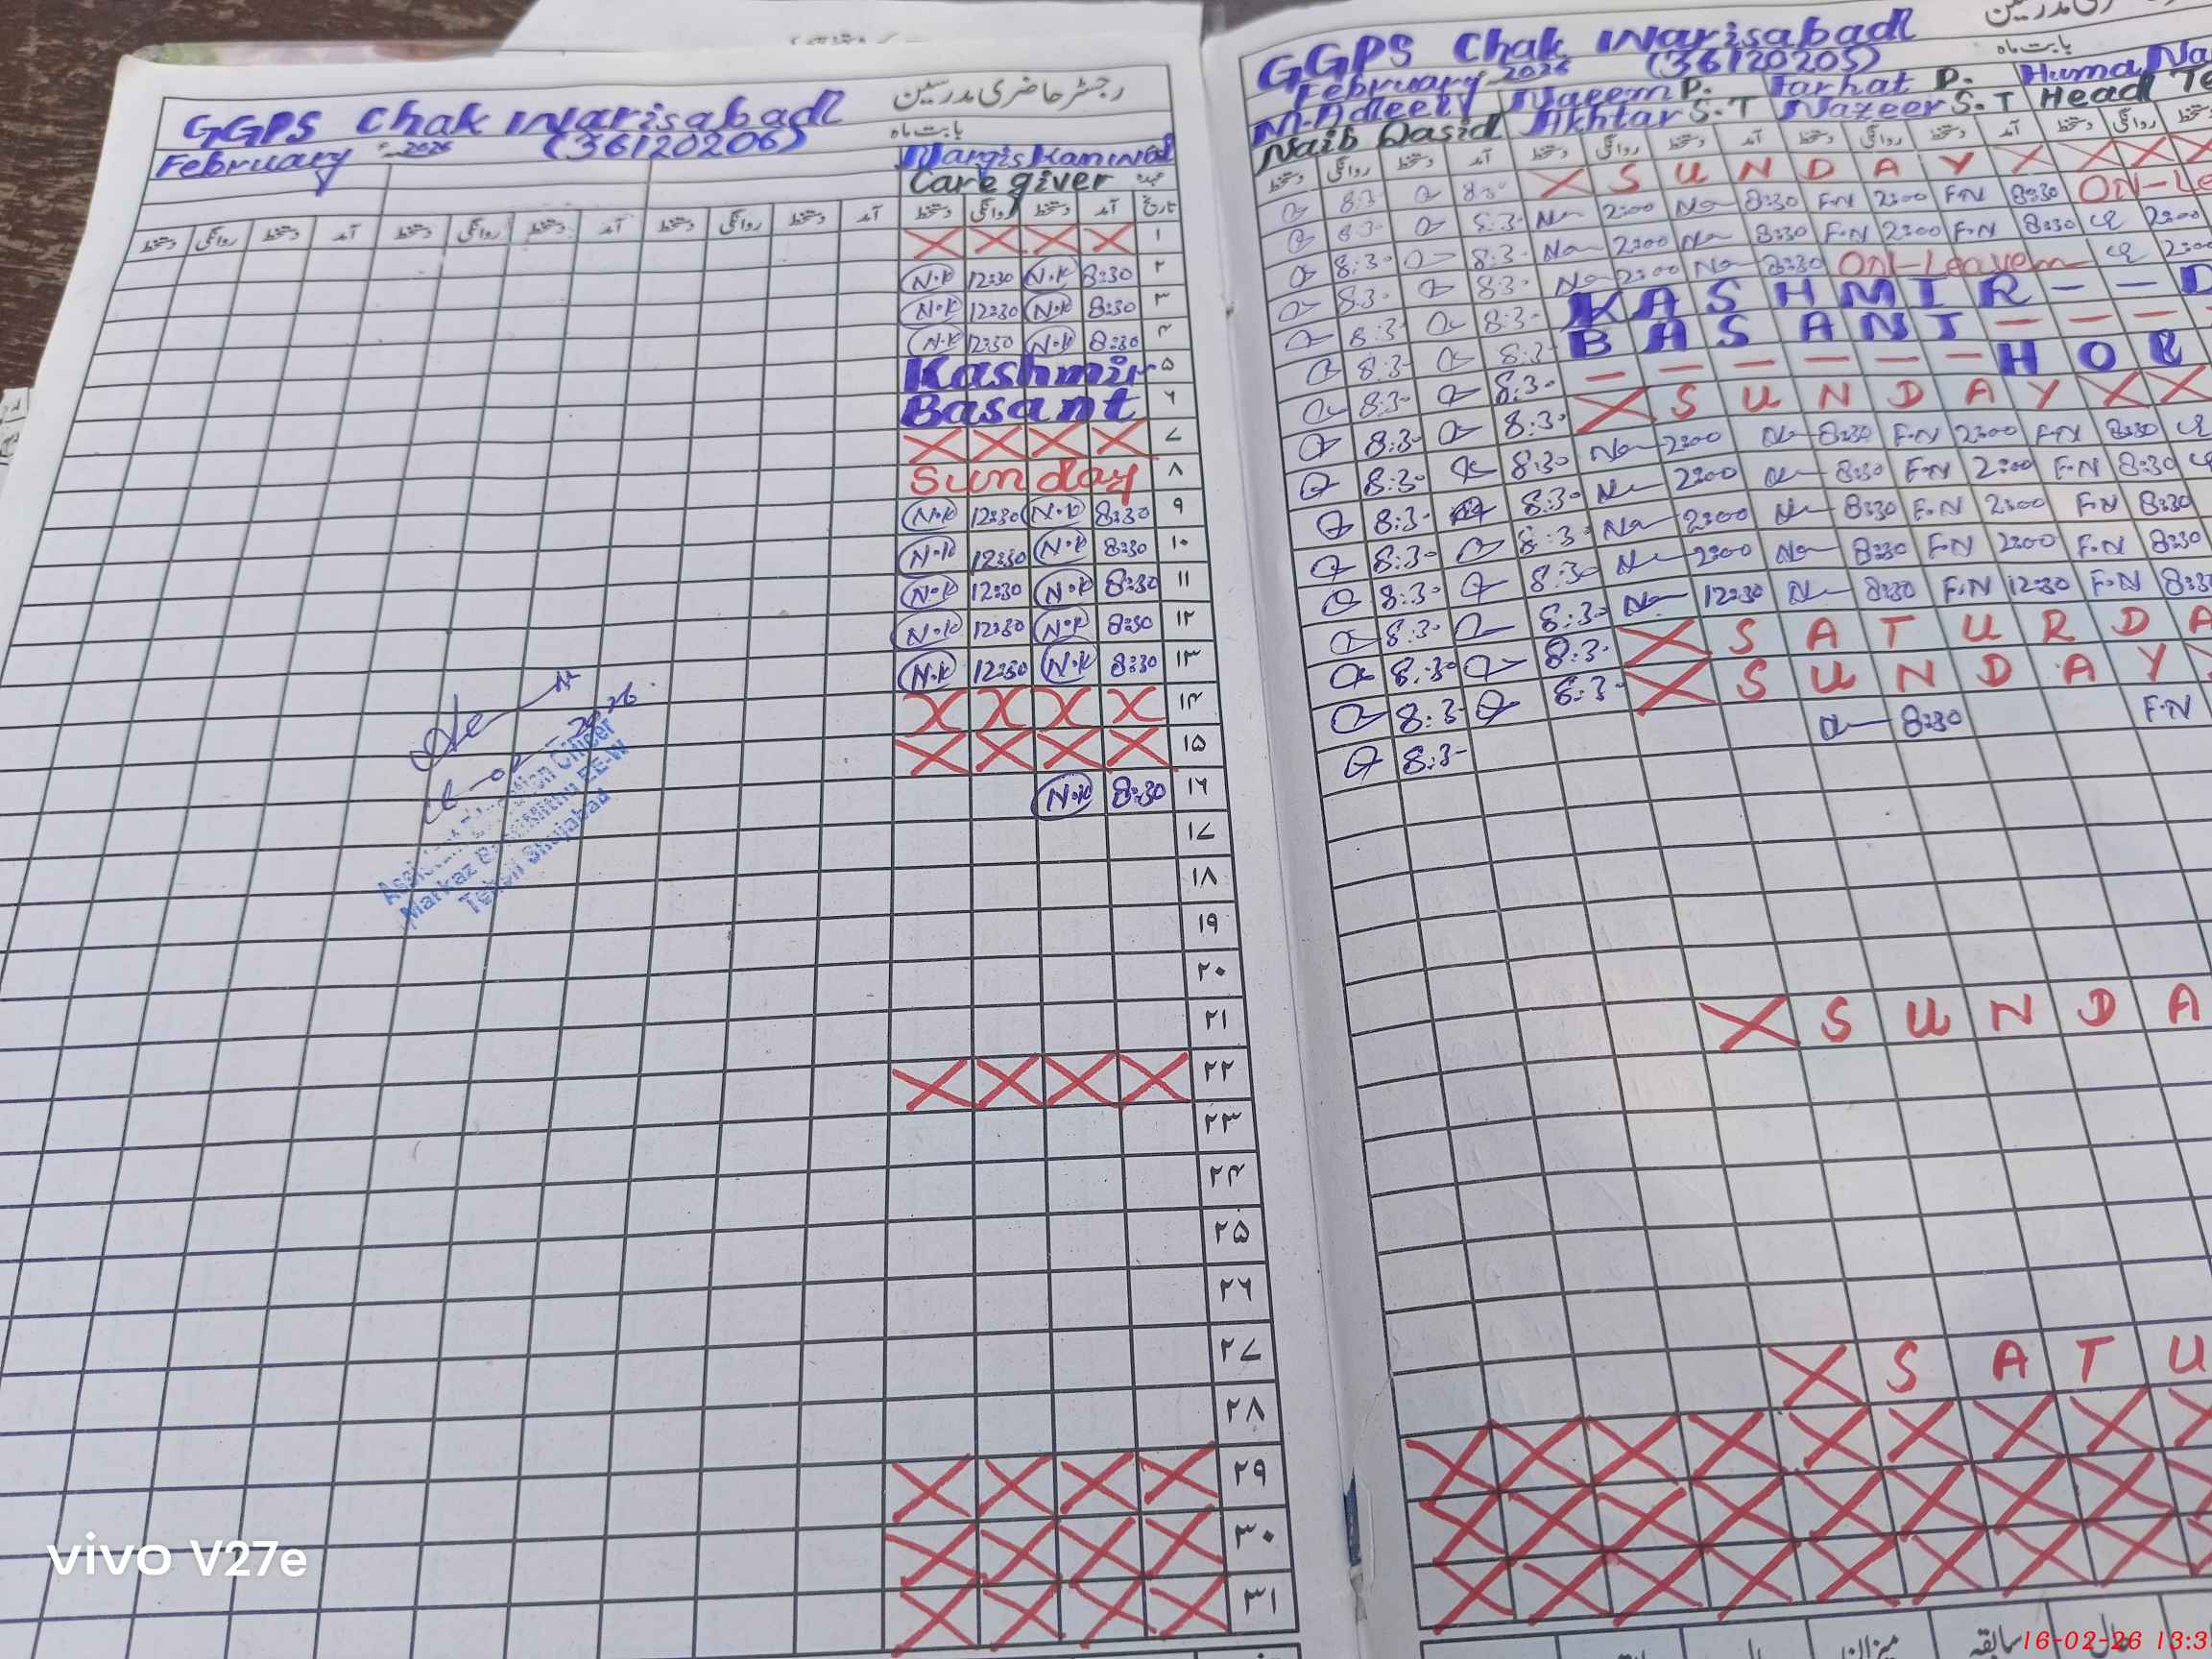 رجسٹر حاضری مدرسین
GGPS Chak Warisabad
بابت ماہ
February 2026 (36120206)
Nargis Kanwal
Care giver عہدہ
دستخط روانگی دستخط آمد دستخط روانگی دستخط آمد دستخط روانگی دستخط آمد دستخط روانگی دستخط آمد تاریخ
۱
N.K 12:30 N.K 8:30 ۲
N.K 12:30 N.K 8:30 ۳
N.K 12:30 N.K 8:30 ۴
Kashmir ۵
Basant ۶
۷
Sunday ۸
N.K 12:30 N.K 8:30 ۹
N.K 12:30 N.K 8:30 ۱۰
N.K 12:30 N.K 8:30 ۱۱
N.K 12:30 N.K 8:30 ۱۲
N.K 12:30 N.K 8:30 ۱۳
۱۴
۱۵
N.K 8:30 ۱۶
۱۷
۱۸
۱۹
۲۰
۲۱
۲۲
۲۳
۲۴
۲۵
۲۶
۲۷
۲۸
۲۹
۳۰
۳۱
Education Officer
Markaz EE-W
Tehsil Shujabad
GGPS Chak Warisabad
بابت ماہ
February 2026 (36120205)
M.Adleel Naeem P. Farhat P. Huma Na
Naib Qasid Akhtar S.T Nazeer S.T Head Te
دستخط روانگی دستخط آمد دستخط روانگی دستخط آمد دستخط روانگی دستخط آمد دستخط روانگی دستخط
8:3- 8:3- S U N D A Y
8:3- 8:3- 2:00 8:30 F.N 2:00 F.N 8:30 ON-Le
8:3- 8:3- 2:00 8:30 F.N 2:00 F.N 8:30 2:00
8:3- 8:3- 2:00 8:30 ON-Leave 2:00
8:3- 8:3- K A S H M I R - - D
8:3- 8:3- B A S A N T - - - -
8:3- 8:3- - - - - - - H O L
8:3- 8:3- S U N D A Y
8:3- 8:30 2:00 8:30 F.N 2:00 F.N 8:30
8:3- 8:30 2:00 8:30 F.N 2:00 F.N 8:30
8:3- 8:3- 2:00 8:30 F.N 2:00 F.N 8:30
8:3- 8:30 2:00 8:30 F.N 2:00 F.N 8:30
8:3- 8:3- 12:30 8:30 F.N 12:30 F.N 8:30
8:30 8:3- S A T U R D A
8:3- 8:3- S U N D A Y
8:3- 8:30 F.N
S U N D A
S A T U
میزان سابقہ حال
vivo V27e
16-02-26 13:3